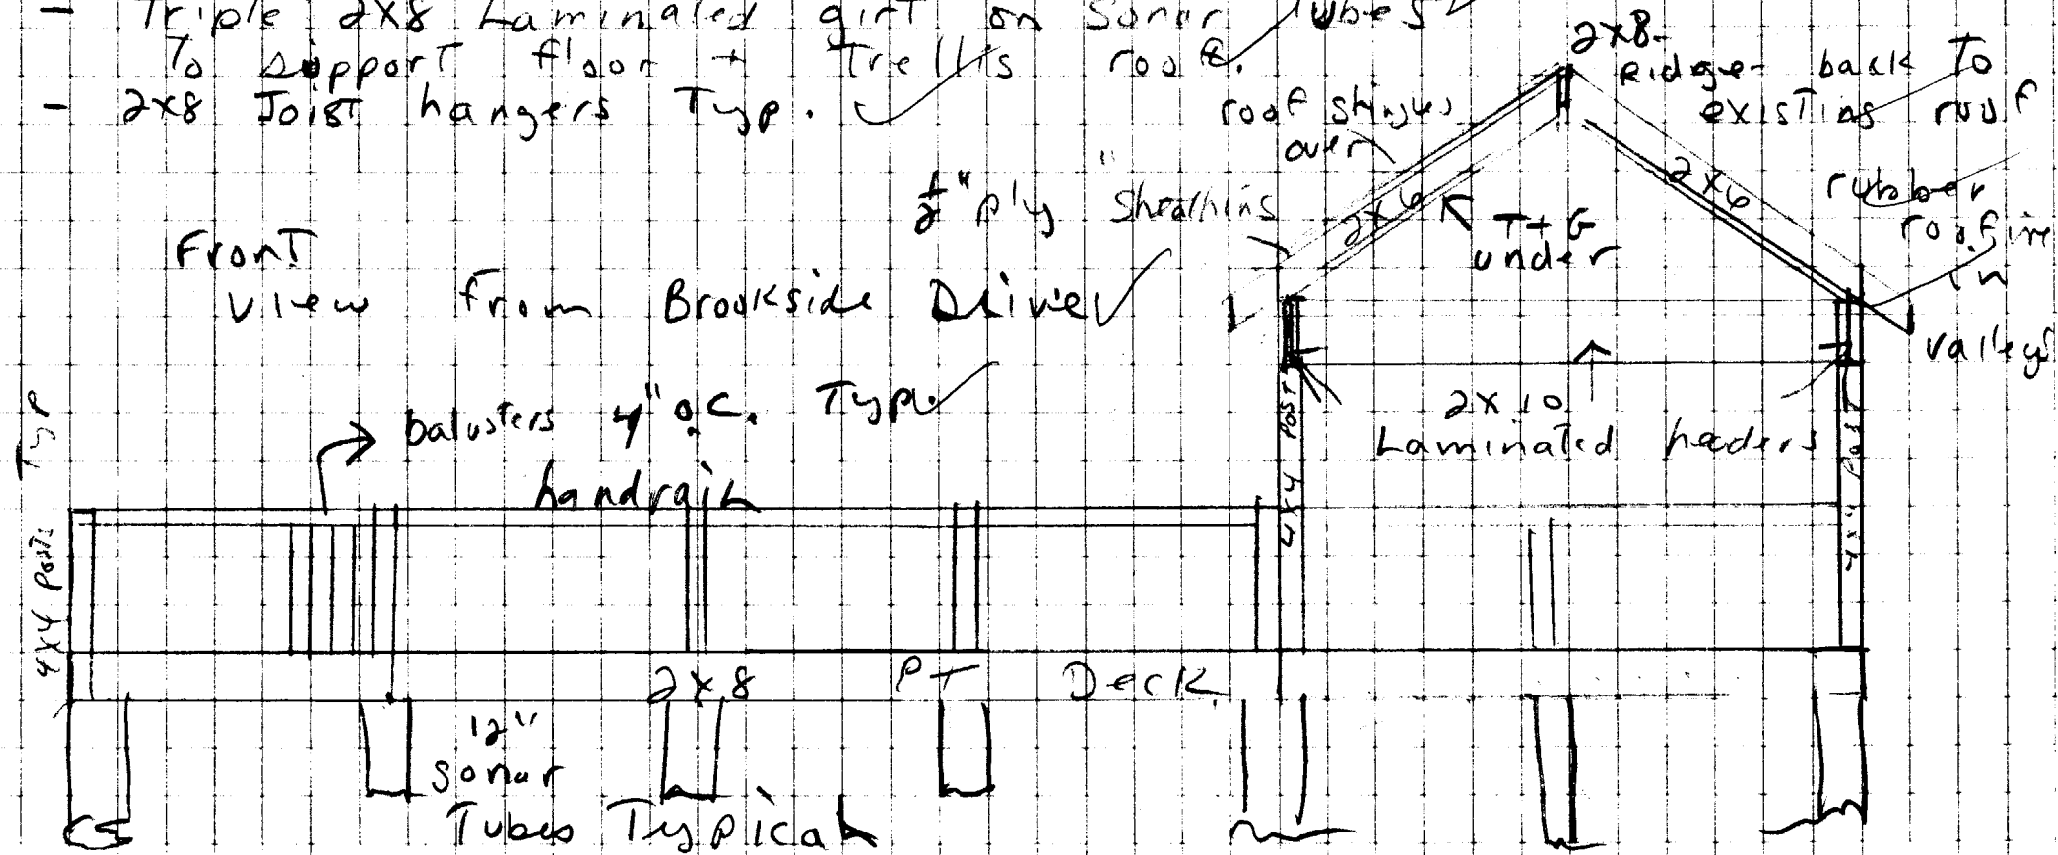 - Triple 2x8 Laminated girt on Sonar Tubes
To support floor + Trellis roof.
- 2x8 Joist hangers Typ.
2x8-
Ridge- back To
existing roof
roof shingles
over
1/2" ply Sheathing
2x6
T+G
under
2x6
rubber
roofing
in
valleys
Front
View from Brookside Drive
balusters 4" o.c. Typ.
handrail
2x10
Laminated headers
4x4 Post
4x4 Post
4x4 Posts Typ
2x8 PT Deck
12"
sonar
Tubes Typical